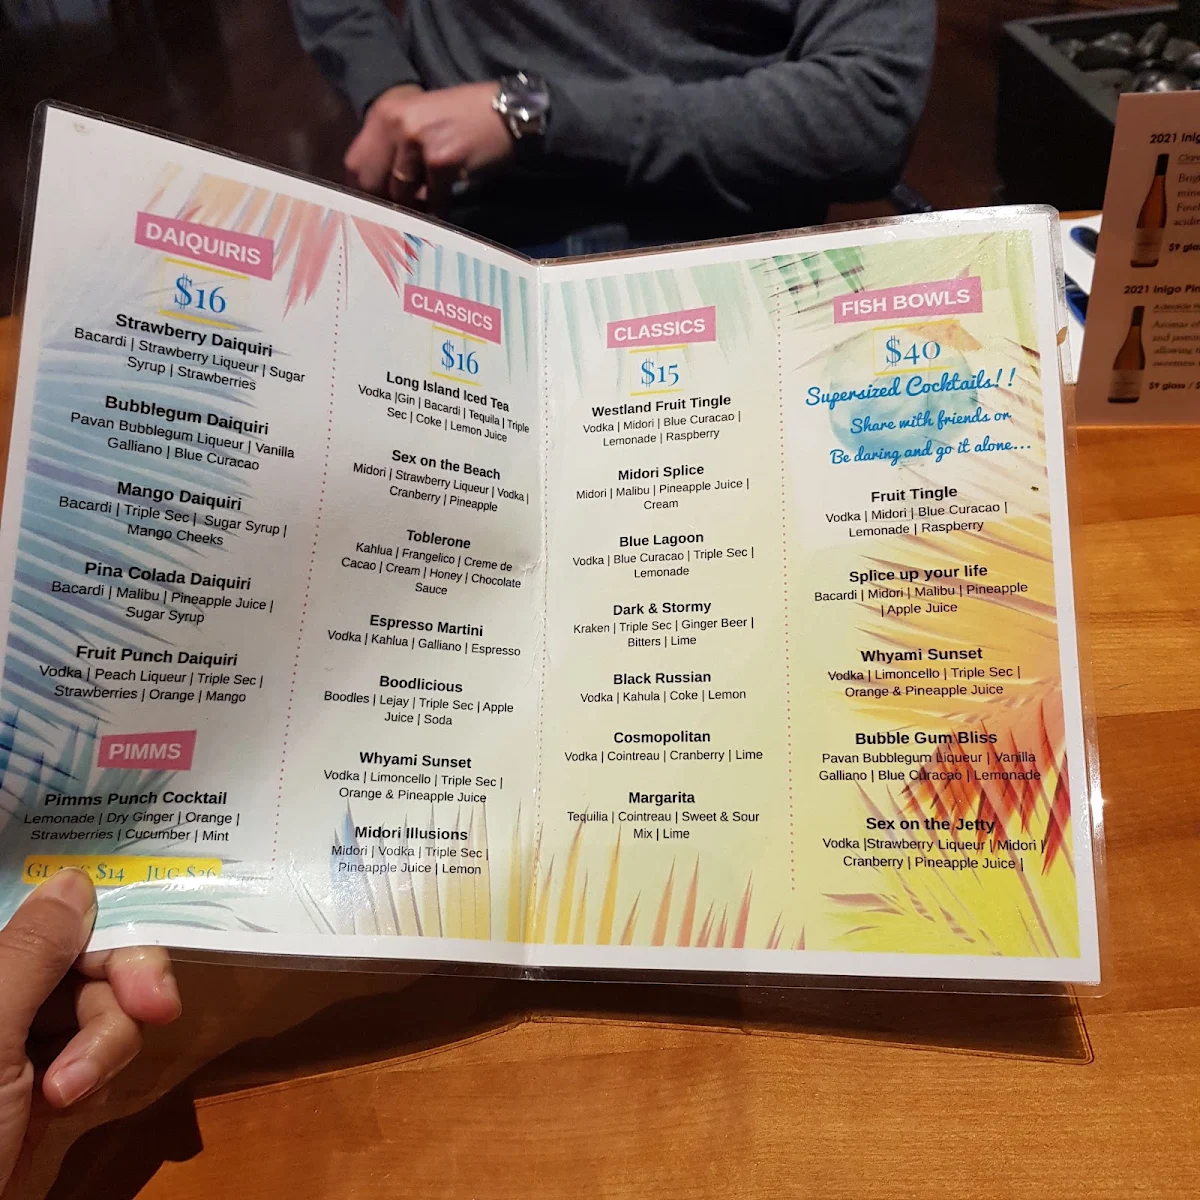 DAIQUIRIS
$16
Strawberry Daiquiri
Bacardi | Strawberry Liqueur | Sugar
Syrup | Strawberries
Bubblegum Daiquiri
Pavan Bubblegum Liqueur | Vanilla
Galliano | Blue Curacao
Mango Daiquiri
Bacardi | Triple Sec | Sugar Syrup |
Mango Cheeks
Pina Colada Daiquiri
Bacardi | Malibu | Pineapple Juice |
Sugar Syrup
Fruit Punch Daiquiri
Vodka | Peach Liqueur | Triple Sec |
Strawberries | Orange | Mango
PIMMS
Pimms Punch Cocktail
Lemonade | Dry Ginger | Orange |
Strawberries | Cucumber | Mint
$14 JUG $26
CLASSICS
$16
Long Island Iced Tea
Vodka |Gin | Bacardi | Tequila | Triple
Sec | Coke | Lemon Juice
Sex on the Beach
Midori | Strawberry Liqueur | Vodka |
Cranberry | Pineapple
Toblerone
Kahlua | Frangelico | Creme de
Cacao | Cream | Honey | Chocolate
Sauce
Espresso Martini
Vodka | Kahlua | Galliano | Espresso
Boodlicious
Boodles | Lejay | Triple Sec | Apple
Juice | Soda
Whyami Sunset
Vodka | Limoncello | Triple Sec |
Orange & Pineapple Juice
Midori Illusions
Midori | Vodka | Triple Sec |
Pineapple Juice | Lemon
CLASSICS
$15
Westland Fruit Tingle
Vodka | Midori | Blue Curacao |
Lemonade | Raspberry
Midori Splice
Midori | Malibu | Pineapple Juice |
Cream
Blue Lagoon
Vodka | Blue Curacao | Triple Sec |
Lemonade
Dark & Stormy
Kraken | Triple Sec | Ginger Beer |
Bitters | Lime
Black Russian
Vodka | Kahula | Coke | Lemon
Cosmopolitan
Vodka | Cointreau | Cranberry | Lime
Margarita
Tequilia | Cointreau | Sweet & Sour
Mix | Lime
FISH BOWLS
$40
Supersized Cocktails!!
Share with friends or
Be daring and go it alone...
Fruit Tingle
Vodka | Midori | Blue Curacao |
Lemonade | Raspberry
Splice up your life
Bacardi | Midori | Malibu | Pineapple
| Apple Juice
Whyami Sunset
Vodka | Limoncello | Triple Sec |
Orange & Pineapple Juice
Bubble Gum Bliss
Pavan Bubblegum Liqueur | Vanilla
Galliano | Blue Curacao | Lemonade
Sex on the Jetty
Vodka |Strawberry Liqueur | Midori |
Cranberry | Pineapple Juice |
2021
$9
2021 Inigo
Aromas
allowing
$9 glass /